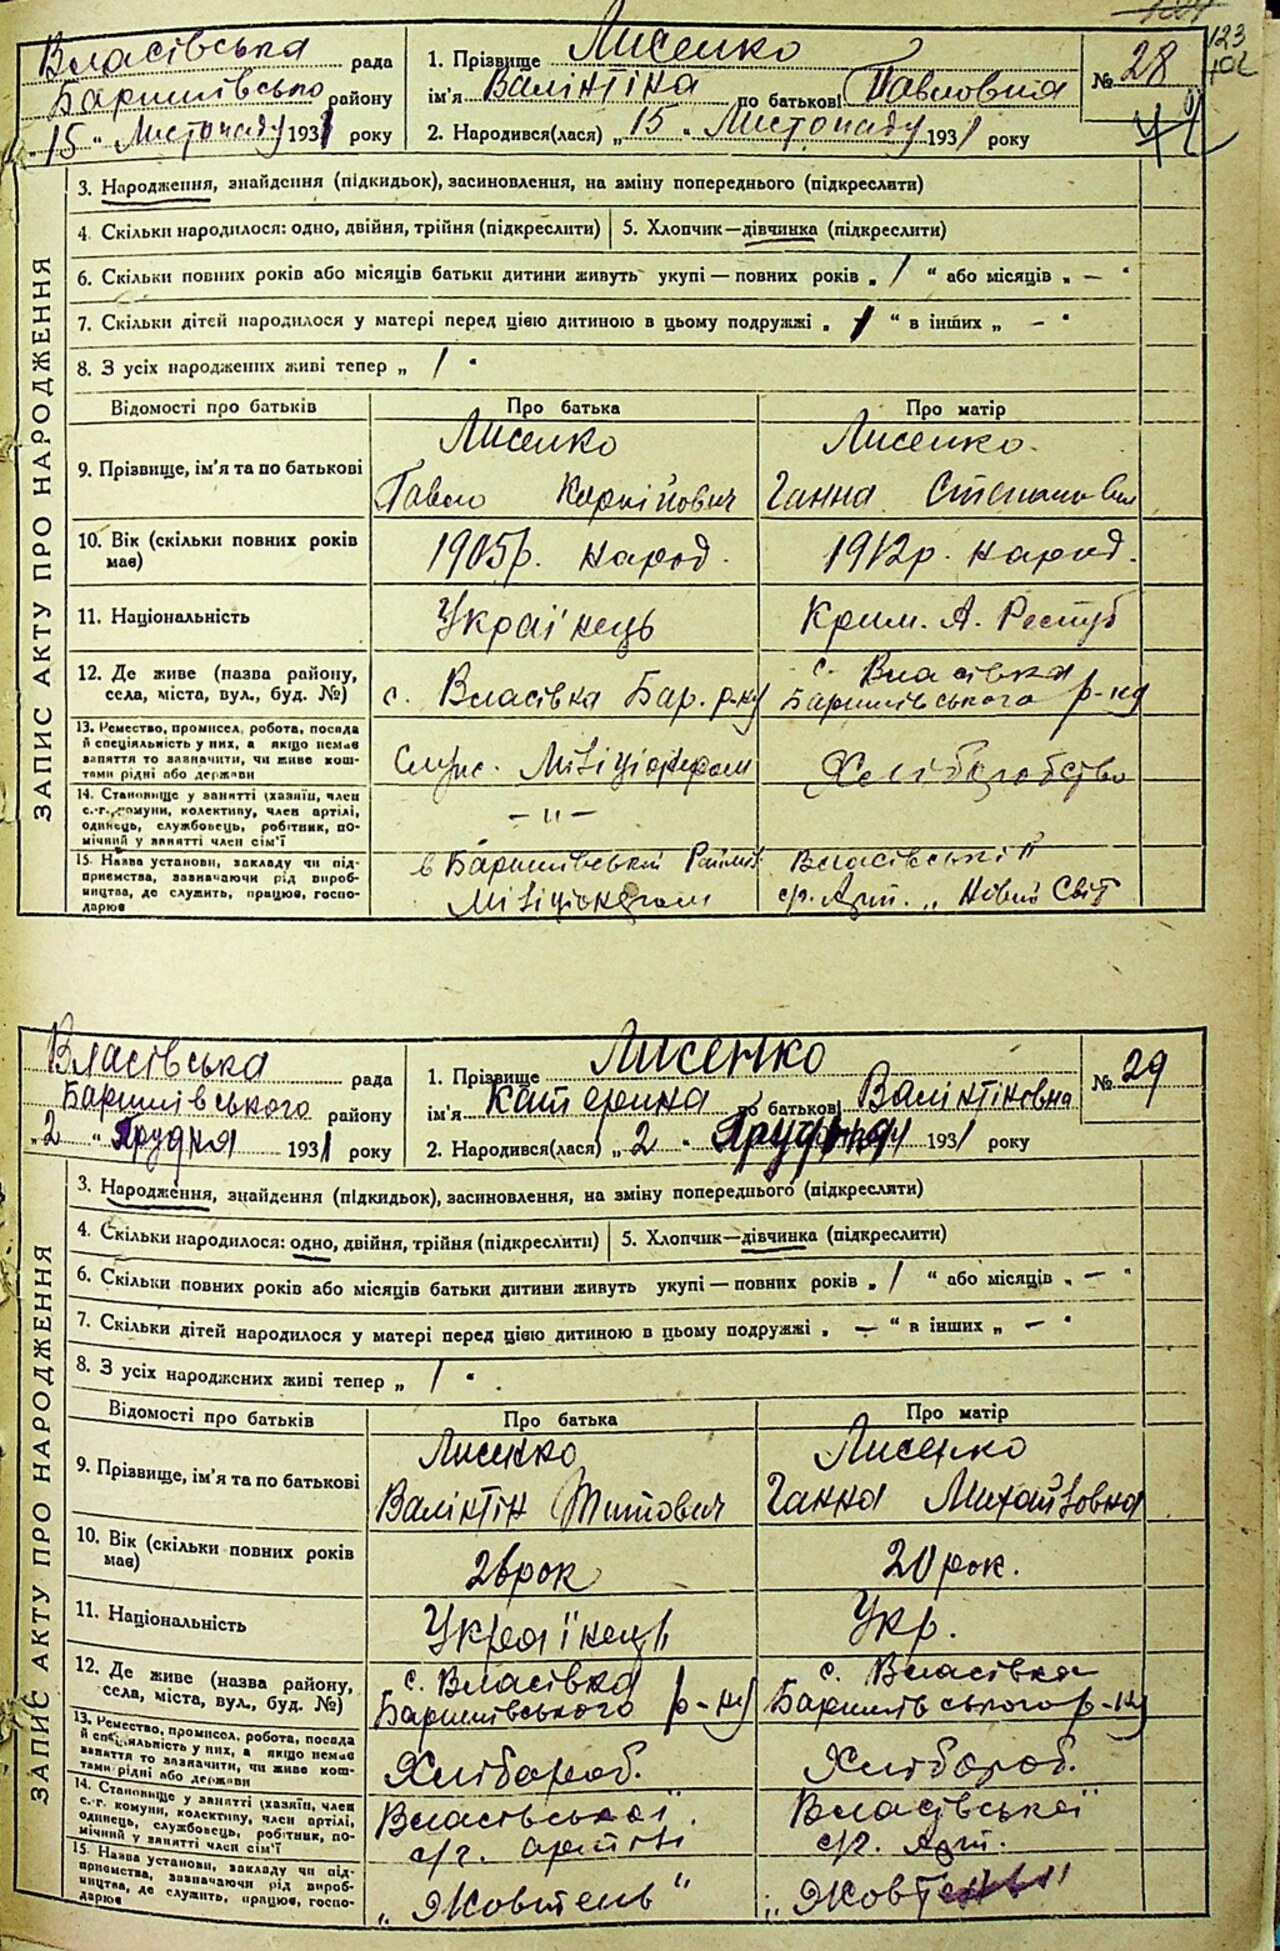 123
102
Власівська рада
Баришівсько району
„15“ Листопаду 1931 року
1. Прізвище Лисенко
ім'я Валінтіна по батькові Павловна
2. Народився(лася) „15“ Листопаду 1931 року
№ 28
ЗАПИС АКТУ ПРО НАРОДЖЕННЯ
3. Народження, знайдення (підкидьок), засиновлення, на зміну попереднього (підкреслити)
4. Скільки народилося: одно, двійня, трійня (підкреслити) 5. Хлопчик—дівчинка (підкреслити)
6. Скільки повних років або місяців батьки дитини живуть укупі — повних років „ 1 “ або місяців „ — “
7. Скільки дітей народилося у матері перед цією дитиною в цьому подружжі „ 1 “ в інших „ — “
8. З усіх народжених живі тепер „ 1 “
Відомості про батьків Про батька Про матір
9. Прізвище, ім'я та по батькові
Лисенко
Павло Карпійович
Лисенко
Ганна
10. Вік (скільки повних років має)
1905р. народ.
1912р. народ.
11. Національність
Украінець
Крим. А. Респуб
12. Де живе (назва району, села, міста, вул., буд. №)
с. Власівка Бар. р-ну
с. Власівка
Баришівського р-ну
13. Ремество, промисел, робота, посада й спеціяльність у них, а якщо немає заняття то зазначити, чи живе коштами рідні або держави
Служ. Міліціонером
Хліборобство
14. Становище у занятті (хазяїн, член с.-г. комуни, колективу, член артілі, одинець, службовець, робітник, помічний у занятті член сім'ї
— „ —
15. Назва установи, закладу чи підприємства, зазначаючи рід виробництва, де служить, працює, господарює
в Баришівській
Міліціонером
Власівській
с/г. Арт. „ Новий Світ
Власівська рада
Баришівського району
„2“ Грудня 1931 року
1. Прізвище Лисенко
ім'я Катерина по батькові Валінтіновна
2. Народився(лася) „2“ Грудня 1931 року
№ 29
ЗАПИС АКТУ ПРО НАРОДЖЕННЯ
3. Народження, знайдення (підкидьок), засиновлення, на зміну попереднього (підкреслити)
4. Скільки народилося: одно, двійня, трійня (підкреслити) 5. Хлопчик—дівчинка (підкреслити)
6. Скільки повних років або місяців батьки дитини живуть укупі — повних років „ 1 “ або місяців „ — “
7. Скільки дітей народилося у матері перед цією дитиною в цьому подружжі „ — “ в інших „ — “
8. З усіх народжених живі тепер „ 1 “
Відомості про батьків Про батька Про матір
9. Прізвище, ім'я та по батькові
Лисенко
Валінтін Титович
Лисенко
Ганна Михайловна
10. Вік (скільки повних років має)
26 рок
20 рок.
11. Національність
Украінець
Укр.
12. Де живе (назва району, села, міста, вул., буд. №)
с. Власівка
Баришівського р-ну
с. Власівка
Баришівського р-ну
13. Ремество, промисел, робота, посада й спеціяльність у них, а якщо немає заняття то зазначити, чи живе коштами рідні або держави
Хлібороб.
Хлібороб.
14. Становище у занятті (хазяїн, член с.-г. комуни, колективу, член артілі, одинець, службовець, робітник, помічний у занятті член сім'ї
Власівської
с/г. артілі
Власівської
с/г. Арт.
15. Назва установи, закладу чи підприємства, зазначаючи рід виробництва, де служить, працює, господарює
„ Жовтень “
„ Жовтень “